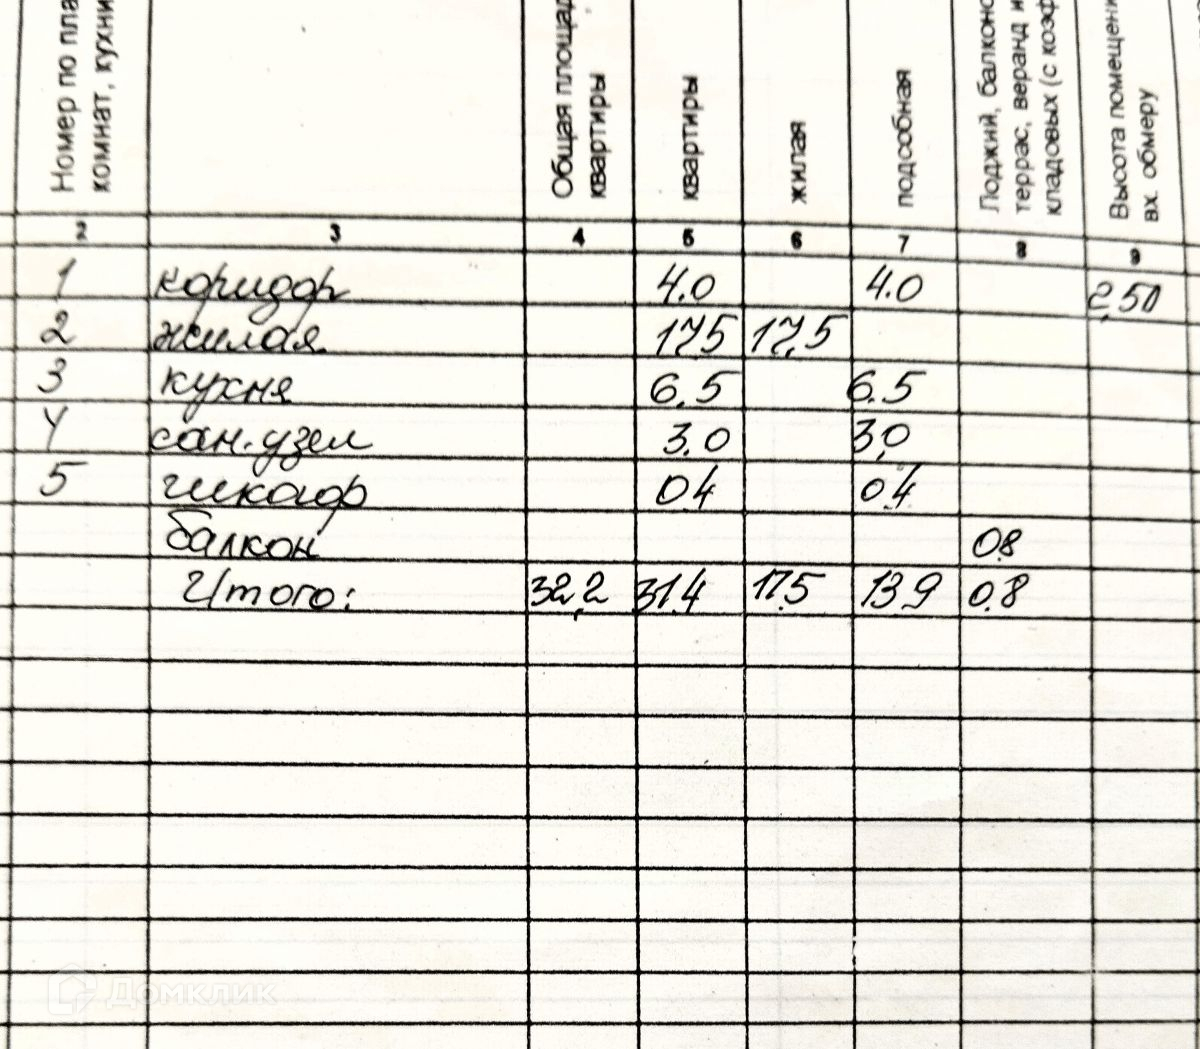 Номер по пла
комнат, кухни
Общая площад
квартиры
квартиры
жилая
подсобная
Лоджий, балконо
террас, веранд и
кладовых (с коэф
Высота помещени
вх. обмеру
2 3 4 5 6 7 8 9
1 коридор 4.0 4.0 2,50
2 жилая 17,5 17,5
3 кухня 6.5 6.5
4 сан.узел 3.0 3,0
5 шкаф 0.4 0.4
балкон 0.8
Итого: 32,2 31.4 17.5 13.9 0.8
Домклик